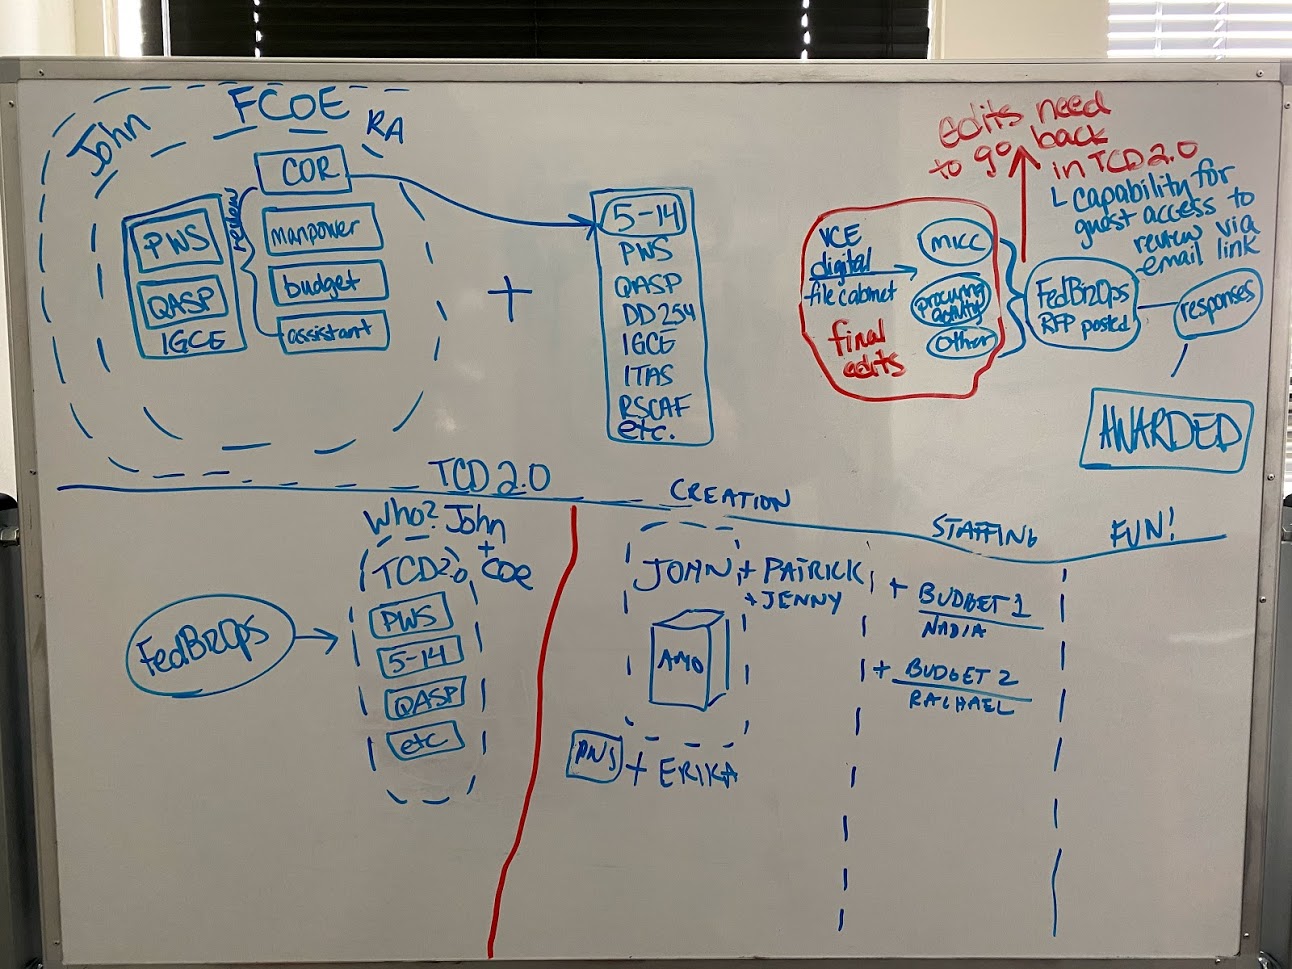 John
FCOE
RA
COR
review
PWS
QASP
IGCE
manpower
budget
assistant
+
5-14
PWS
QASP
DD254
IGCE
ITAS
RSCAF
etc.
edits need
to go back
in TCD2.0
└ capability for
guest access to
review via
email link
VCE
digital
file cabinet
final
edits
MICC
procuring
activity
other
FedBizOps
RFP posted
responses
AWARDED
TCD 2.0
Who? John
+
COE
TCD2.0
FedBizOps
PWS
5-14
QASP
etc
CREATION
STAFFING
FUN!
JOHN + PATRICK
+ JENNY
PWS + ERIKA
+ BUDGET 1
NADIA
+ BUDGET 2
RACHAEL